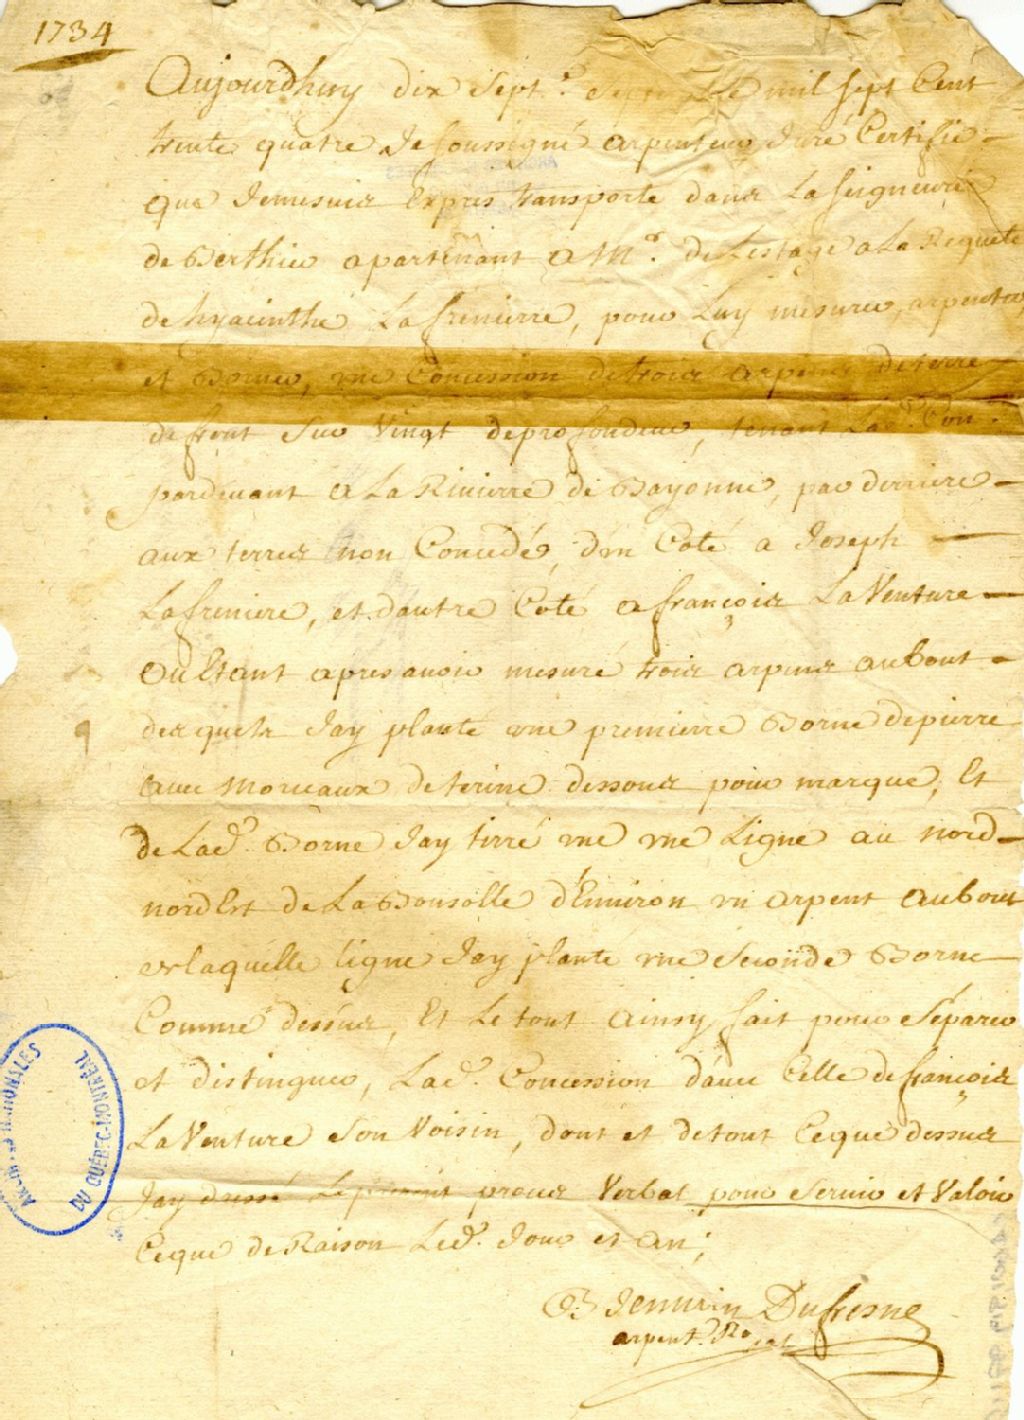 1734
Aujourdhuy dix Sept.e Septembre mil Sept Cent
trente quatre Je soussigné arpenteur Juré Certifie
que Jemesuis Expres transporte dans La Seigneurie
de Berthier apartenant a Mr. de Lestage a La Requete
de hyacinthe Lafreniere, pour Luy mesurer, arpenter,
et Borner, une Concession de trois arpens de terre
de front Sur Vingt de profondeur, tenant Lad. Con.
pardevant a La Rivierre de Bayonne, par derriere
aux terres non Concedés, d'un Coté a Joseph
Lafreniere, et dautre Coté a françois La Venture
Ou Etant apres avoir mesuré trois arpens au bout
des quels Jay planté une premierre Borne de pierre
avec Morceaux de terine dessous pour marque, Et
de Lad. Borne Jay tirré une une Ligne au nord
nord Est de La Bousolle d'Environ un arpent au bout
de laquelle ligne Jay planté une Seconde Borne
Comme dessus, Et Le tout ainsy fait pour Séparer
et distinguer, Lad. Concession d'avec Celle de françois
La Venture Son Voisin, dont et de tout Ceque dessus
Jay dressé Le present proces Verbal pour Servir et Valoir
Ceque de Raison Led. Jour et an;
Jenvrin Dufresne
arpent.
ARCHIVES NATIONALES
DU QUÉBEC-MONTRÉAL